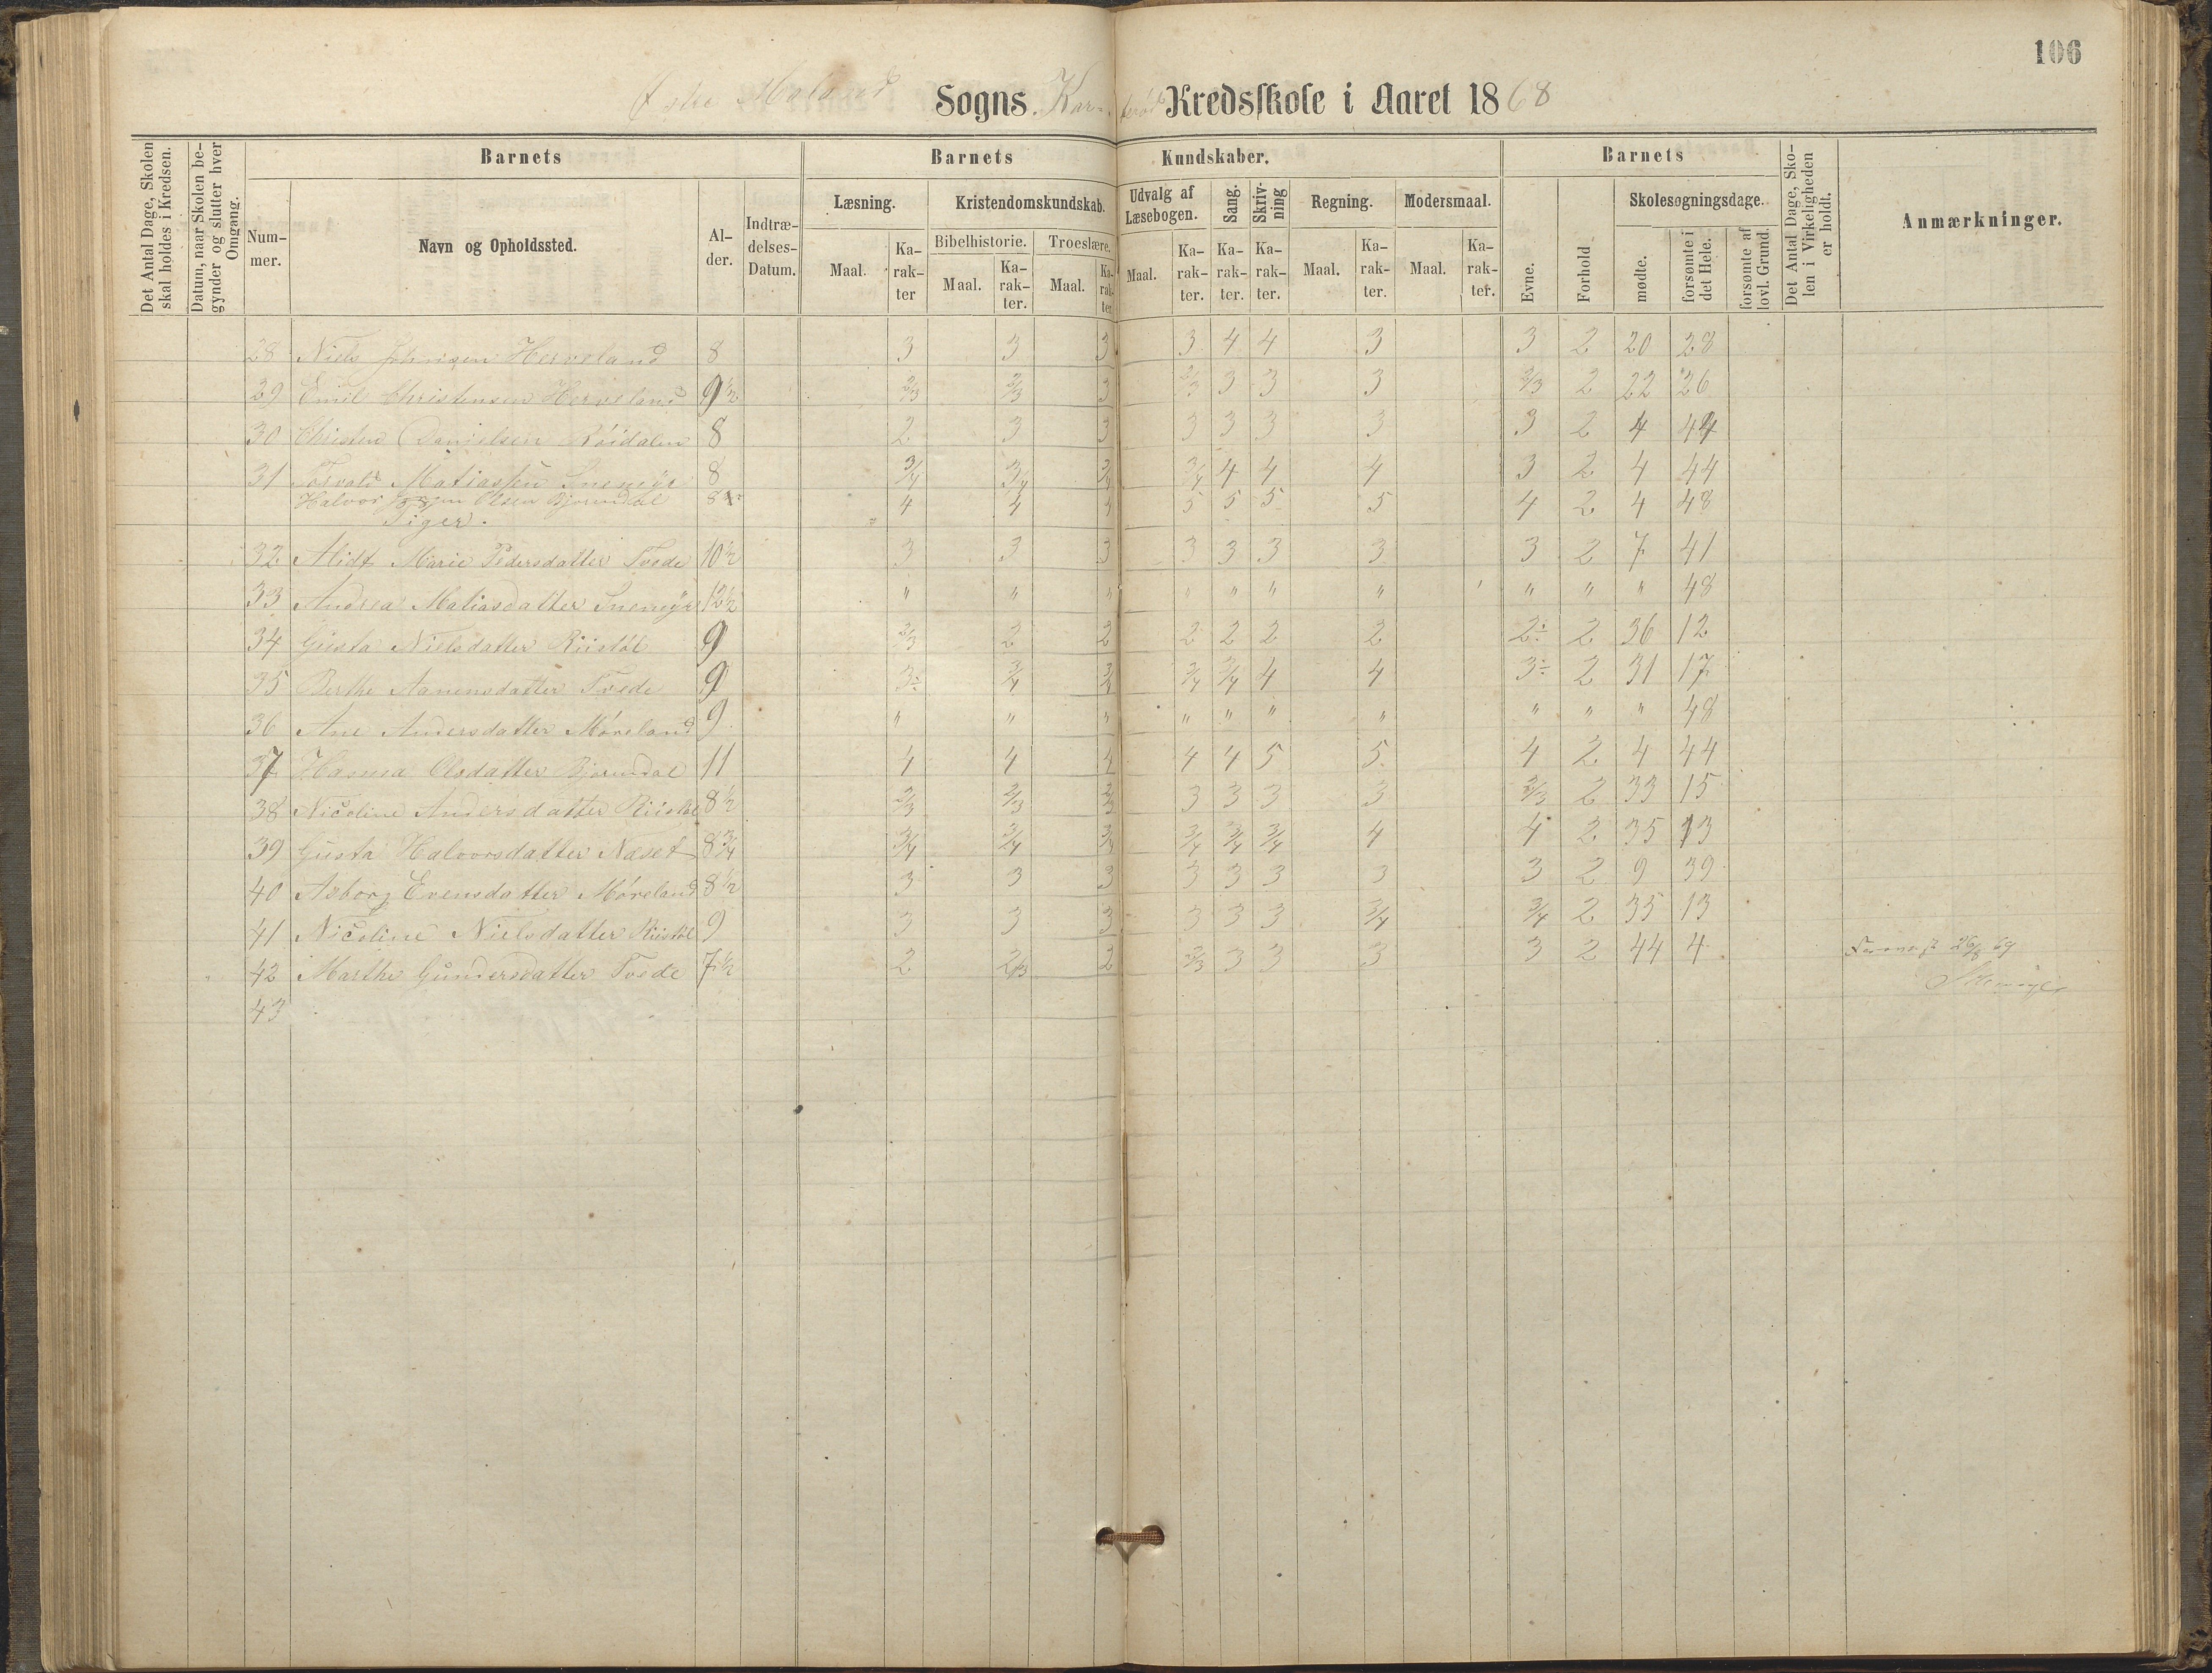 106
Østre Moland Sogns Kredsskole i Aaret 1868
Det Antal Dage, Skolen skal holdes i Kredsen.
Datum, naar Skolen begynder og slutter hver Omgang.
Barnets
Nummer.
Navn og Opholdssted.
Alder.
Indtrædelses-Datum.
Barnets Kundskaber.
Læsning.
Maal. Karakter
Kristendomskundskab.
Bibelhistorie.
Maal. Karakter.
Troeslære.
Maal. Karakter
Udvalg af Læsebogen.
Maal. Karakter.
Sang.
Karakter.
Skrivning
Karakter.
Regning.
Maal. Karakter.
Modersmaal.
Maal. Karakter.
Barnets
Evne.
Forhold
Skolesøgningsdage.
mødte.
forsømte i det Hele.
forsømte af lovl. Grund.
Det Antal Dage, Skolen i Virkeligheden er holdt.
Anmærkninger.
28 Niels Johnsen Herveland 8 3 3 3 3 4 4 3 3 2 20 28
29 Emil Christensen Herveland 9 1/2 2/3 2/3 3 2/3 3 3 3 2/3 2 22 26
30 Christen Danielsen Röidalen 8 2 3 3 3 3 3 3 3 2 4 44
31 Torvald Matiassen Snemyr 8 3/4 3/4 3/4 3/4 4 4 4 3 2 4 44
Halvor Olsen Bjorndal 8 4 4 4 5 5 5 5 4 2 4 48
Tiger.
32 Marie Pedersdatter Tvede 10 1/2 3 3 3 3 3 3 3 3 2 7 41
33 Andrea Matiasdatter Snemyr 12 1/2 " " " " " " " " " " 48
34 Gusta Nielsdatter Riistöl 9 2/3 2 2 2 2 2 2 2÷ 2 36 12
35 Berthe Aanensdatter Tvede 9 3÷ 3/4 3/4 3/4 3/4 4 4 3÷ 2 31 17
36 Ane Andersdatter Möreland 9 " " " " " " " " " " 48
37 Hasma Olsdatter Bjorndal 11 4 4 4 4 4 5 5 4 2 4 44
38 Nicoline Andersdatter Riistöl 8 1/2 2/3 2/3 2/3 3 3 3 3 2/3 2 33 15
39 Gusta Halvorsdatter Næset 8 3/4 3/4 3/4 3/4 3/4 3/4 3/4 4 4 2 35 13
40 Asborg Evensdatter Möreland 8 1/2 3 3 3 3 3 3 3 3 2 9 39
41 Nicoline Nielsdatter Riistöl 9 3 3 3 3 3 3 3/4 3/4 2 35 13
42 Marthe Gundersdatter Tvede 7 1/2 2 2/3 2 2/3 3 3 3 3 2 44 4
43